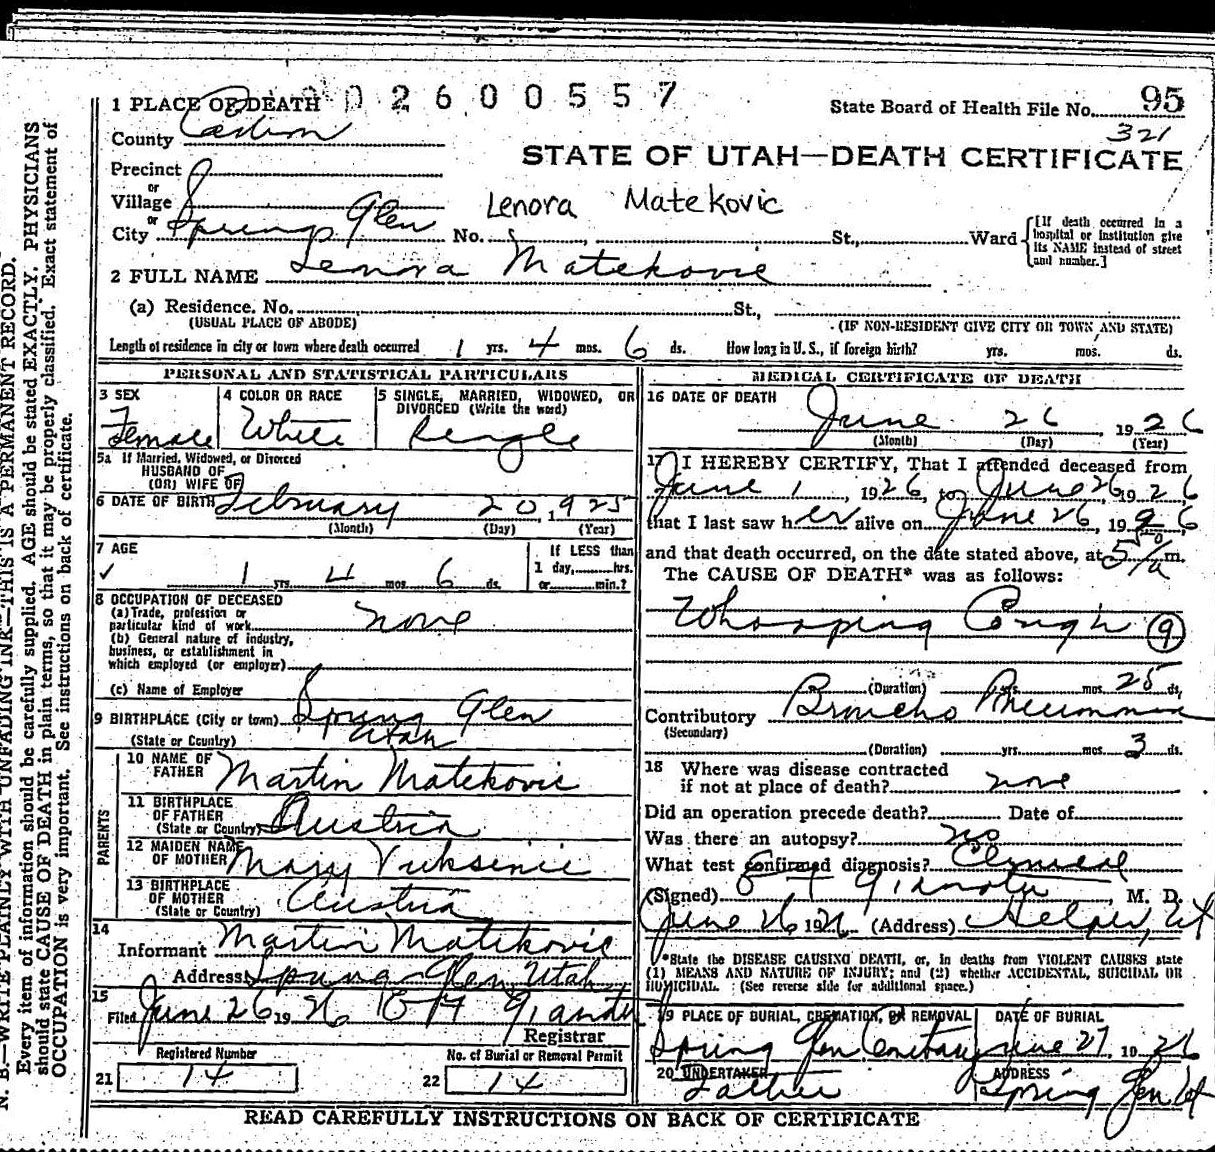 N. B.—WRITE PLAINLY WITH UNFADING INK—THIS IS A PERMANENT RECORD.
Every item of information should be carefully supplied. AGE should be stated EXACTLY. PHYSICIANS
should state CAUSE OF DEATH in plain terms, so that it may be properly classified. Exact statement of
OCCUPATION is very important. See instructions on back of certificate.
1 PLACE OF DEATH
02600557
State Board of Health File No. 95
321
County Carbon
STATE OF UTAH—DEATH CERTIFICATE
Precinct
or
Village
Lenora Matekovic
or
City Springs Glen No. St., Ward
[If death occurred in a
hospital or institution give
its NAME instead of street
and number.]
2 FULL NAME Lenora Matekovic
(a) Residence. No. St.,
(USUAL PLACE OF ABODE) (IF NON-RESIDENT GIVE CITY OR TOWN AND STATE)
Length of residence in city or town where death occurred 1 yrs. 4 mos. 6 ds. How long in U. S., if foreign birth? yrs. mos. ds.
PERSONAL AND STATISTICAL PARTICULARS
3 SEX
Female
4 COLOR OR RACE
White
5 SINGLE, MARRIED, WIDOWED, OR
DIVORCED (Write the word)
Single
5a If Married, Widowed, or Divorced
HUSBAND OF
(OR) WIFE OF
6 DATE OF BIRTH February 20, 1925
(Month) (Day) (Year)
7 AGE
✓ 1 yrs. 4 mos. 6 ds.
If LESS than
1 day, hrs.
or min.?
8 OCCUPATION OF DECEASED
(a) Trade, profession or
particular kind of work none
(b) General nature of industry,
business, or establishment in
which employed (or employer)
(c) Name of Employer
9 BIRTHPLACE (City or town) Spring Glen
(State or Country) Utah
PARENTS
10 NAME OF
FATHER Martin Matekovic
11 BIRTHPLACE
OF FATHER
(State or Country) Austria
12 MAIDEN NAME
OF MOTHER Mary Vuksinic
13 BIRTHPLACE
OF MOTHER
(State or Country) Austria
14
Informant Martin Matekovic
Address Spring Glen, Utah
15
Filed June 26 1926
Registrar
Registered Number
21 14
No. of Burial or Removal Permit
22 14
MEDICAL CERTIFICATE OF DEATH
16 DATE OF DEATH
June 26 1926
(Month) (Day) (Year)
17 I HEREBY CERTIFY, That I attended deceased from
June 1, 1926, to June 26 1926
that I last saw her alive on June 26, 1926,
and that death occurred, on the date stated above, at m.
The CAUSE OF DEATH* was as follows:
Whooping Cough 9
(Duration) yrs. mos. 25 ds.
Contributory Broncho Pneumonia
(Secondary)
(Duration) yrs. mos. 3 ds.
18 Where was disease contracted
if not at place of death? none
Did an operation precede death? Date of
Was there an autopsy? no
What test confirmed diagnosis? Clinical
(Signed) M. D.
June 26 1926 (Address) Helper, Ut
*State the DISEASE CAUSING DEATH, or, in deaths from VIOLENT CAUSES state
(1) MEANS AND NATURE OF INJURY; and (2) whether ACCIDENTAL, SUICIDAL OR
HOMICIDAL. (See reverse side for additional space.)
19 PLACE OF BURIAL, CREMATION, OR REMOVAL
Spring Glen Cemetary
DATE OF BURIAL
June 27, 1926
20 UNDERTAKER
Father
ADDRESS
Spring Glen Ut
READ CAREFULLY INSTRUCTIONS ON BACK OF CERTIFICATE